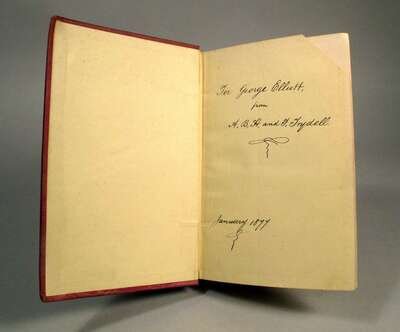 For George Elliott,
from
A. B. H. and F. Trydell.
January 1877